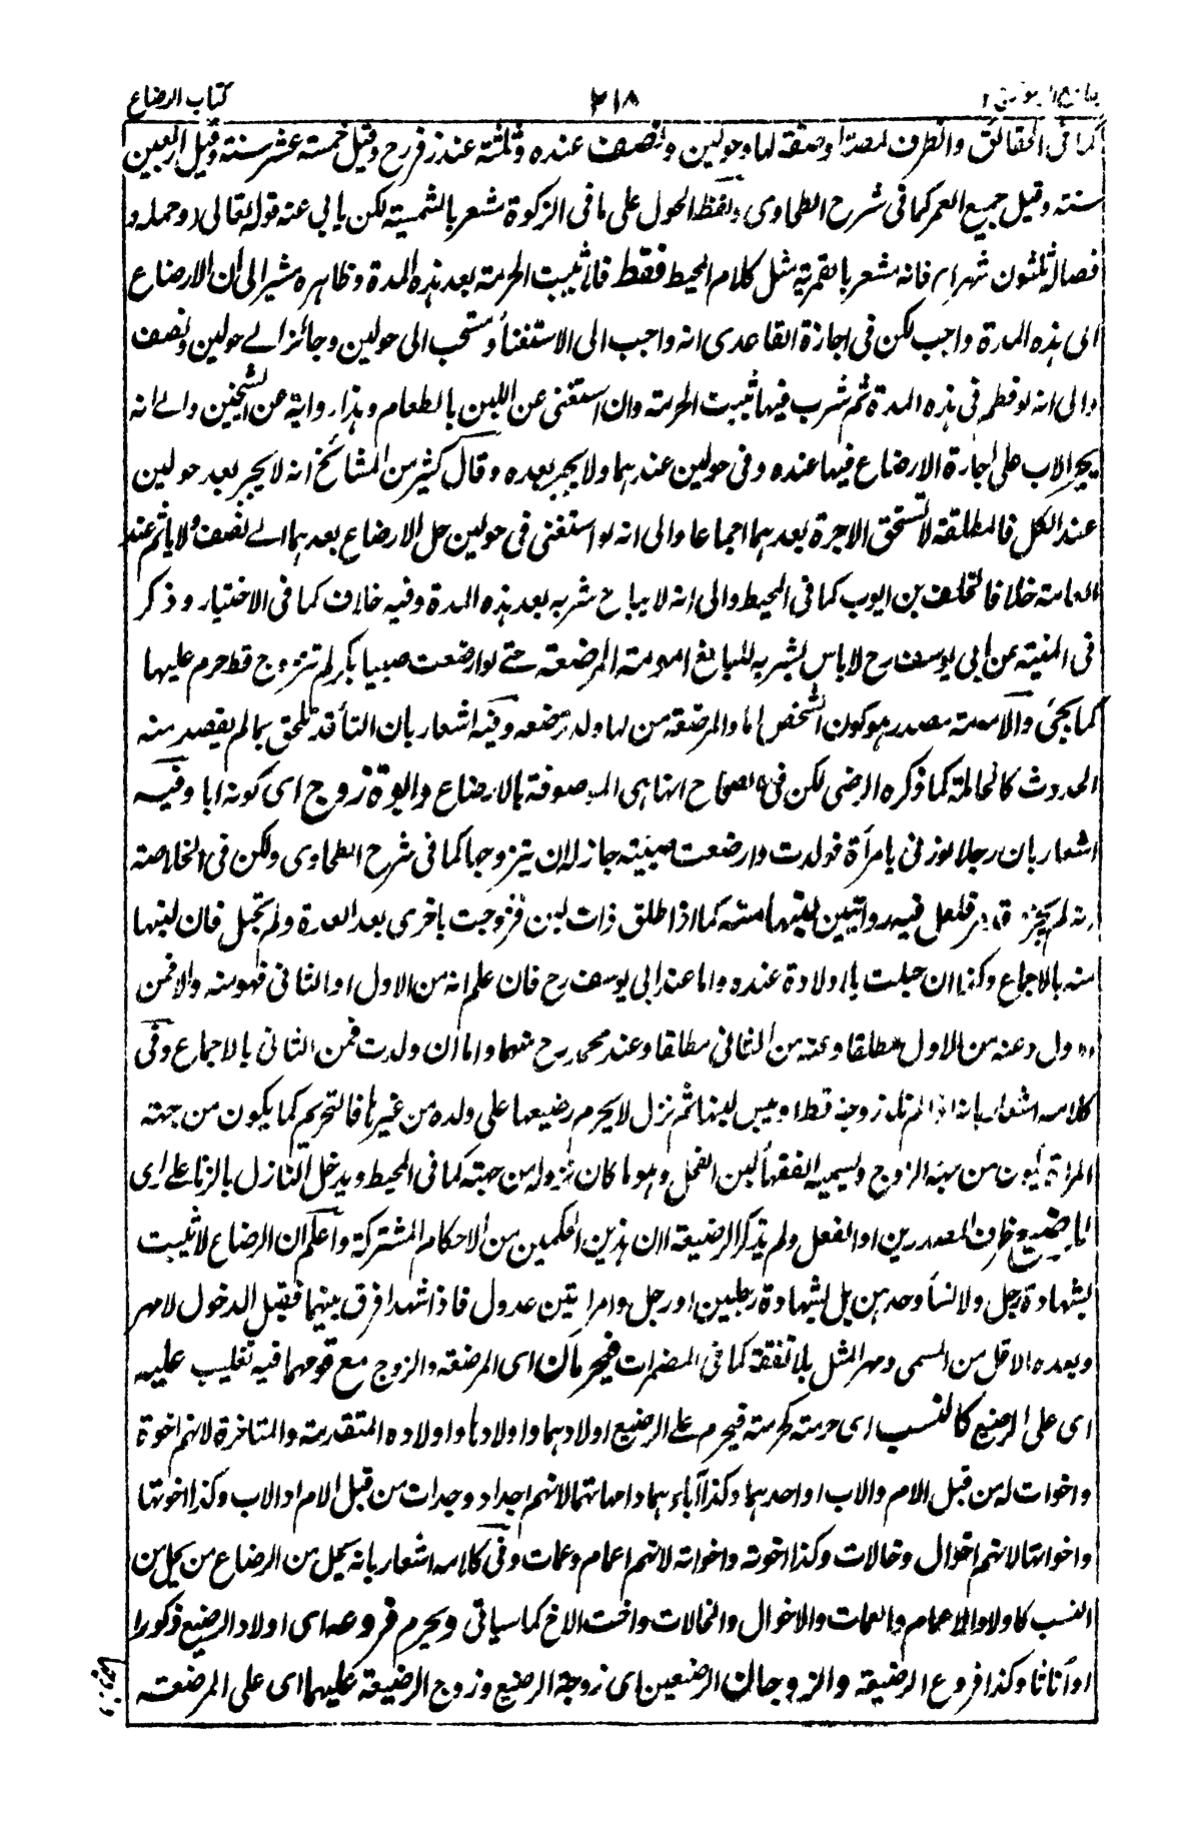 كتاب الرضاع
٢١٨
كما فى الحقائق والظرف لمصة او صفة لها وحولين ونصف عنده وثلثة عند زفر رح وقيل خمسة عشر سنة وقيل اربعين
سنة وقيل جميع العمر كما فى شرح الطحاوى ولفظ الحول على ما فى الزكوة مشعر بالشمسية لكن يابى عنه قوله تعالى (وحمله و
فصاله ثلثون شهرا) فانه مشعر بالقمرية مثل كلام المحيط فقط فلا تثبت الحرمة بعد هذه المدة وظاهره مشير الى ان الارضاع
الى هذه المدة واجب لكن فى اجازة القاعدى انه واجب الى الاستغناء ومستحب الى حولين وجائز الى حولين ونصف
والى انه لو فطم فى هذه المدة ثم شرب فيها تثبت الحرمة وان استغنى عن اللبن بالطعام وهذا رواية عن الشيخين والى انه
يجبر الاب على اجارة الارضاع فيها عنده وفى حولين عندهما ولا يجبر بعده وقال كثير من المشائخ انه لا يجبر بعد حولين
عند الكل فالمطلقة لا تستحق الاجرة بعدهما اجماعا والى انه لو استغنى فى حولين حل الارضاع بعدهما الى نصف ولا ياثم عند
العامة خلافا لخلف بن ايوب كما فى المحيط والى انه لا يباح شربه بعد هذه المدة وفيه خلاف كما فى الاختيار وذكر
فى المنية عن ابى يوسف رح لا باس بشربه للبالغ امومة المرضعة حتى لو ارضعت صبيا بكر لم تتزوج قط حرم عليها
كما يجئ والامومة مصدر هو كون الشخص اما والمرضعة من لها ولد ترضعه وفيه اشعار بان التاء قد تلحق بما لم يقصد منه
الحدوث كالحاملة كما ذكره الرضى لكن فى الصحاح انها هى الموصوفة بالارضاع وابوة زوج اى كونه ابا وفيه
اشعار بان رجلا لو زنى بامرأة فولدت وارضعت صبية جاز له ان يتزوجها كما فى شرح الطحاوى ولكن فى الخلاصة
انه لم يجز فلعل فيه روايتين لبنها منه كما اذا طلق ذات لبن فتزوجت باخرى بعد العدة ولم تحبل فان لبنها
منه بالاجماع وكذا ان حبلت بلا ولادة عنده واما عند ابى يوسف رح فان علم انه من الاول او الثانى فهو منه والا فمن
الاول وعنه من الاول مطلقا وعنه من الثانى مطلقا وعند محمد رح منهما واما ان ولدت فمن الثانى بالاجماع وفى
كلامه اشعار بانه اذا لم تلد زوجة قط او يبس لبنها ثم نزل لا يحرم رضيعها على ولده من غيرها فالتحريم كما يكون من جهة
المرأة يكون من جهة الزوج ويسميه الفقهاء لبن الفحل وهو ما كان نزوله من جهته كما فى المحيط ويدخل النازل بالزنا على راى
للرضيع ظرف المصدرين او الفعل ولم يذكر الرضيعة لان هذين الحكمين من الاحكام المشتركة واعلم ان الرضاع لا تثبت
بشهادة رجل ولا لنساء وحدهن بل بشهادة رجلين او رجل وامراتين عدول فاذا شهدا فرق بينهما فقبل الدخول لا مهر
وبعده الاقل من المسمى ومهر المثل بلا نفقة كما فى المضمرات فيحرمان اى المرضعة والزوج مع قومهما فيه تغليب عليه
اى على الرضيع كالنسب اى حرمة كحرمته فيحرم على الرضيع اولادهما واولادها واولاده المتقدمة والمتاخرة لانهم اخوة
واخوات له من قبل الام والاب او احدهما وكذا آباؤهما وامهاتهما لانهم اجداد وجدات من قبل الام او الاب وكذا اخوتها
واخواتها لانهم اخوال وخالات وكذا اخوته واخواته لانهم اعمام وعمات وفى كلامه اشعار بانه يحل من الرضاع من يحل من
النسب كاولاد الاعمام والعمات والاخوال والخالات واخت الاخ كما سياتى ويحرم فروعه اى اولاد الرضيع ذكورا
او اناثا وكذا فروع الرضيعة والزوجان الرضيعين اى زوجة الرضيع وزوج الرضيعة عليهما اى على المرضعة